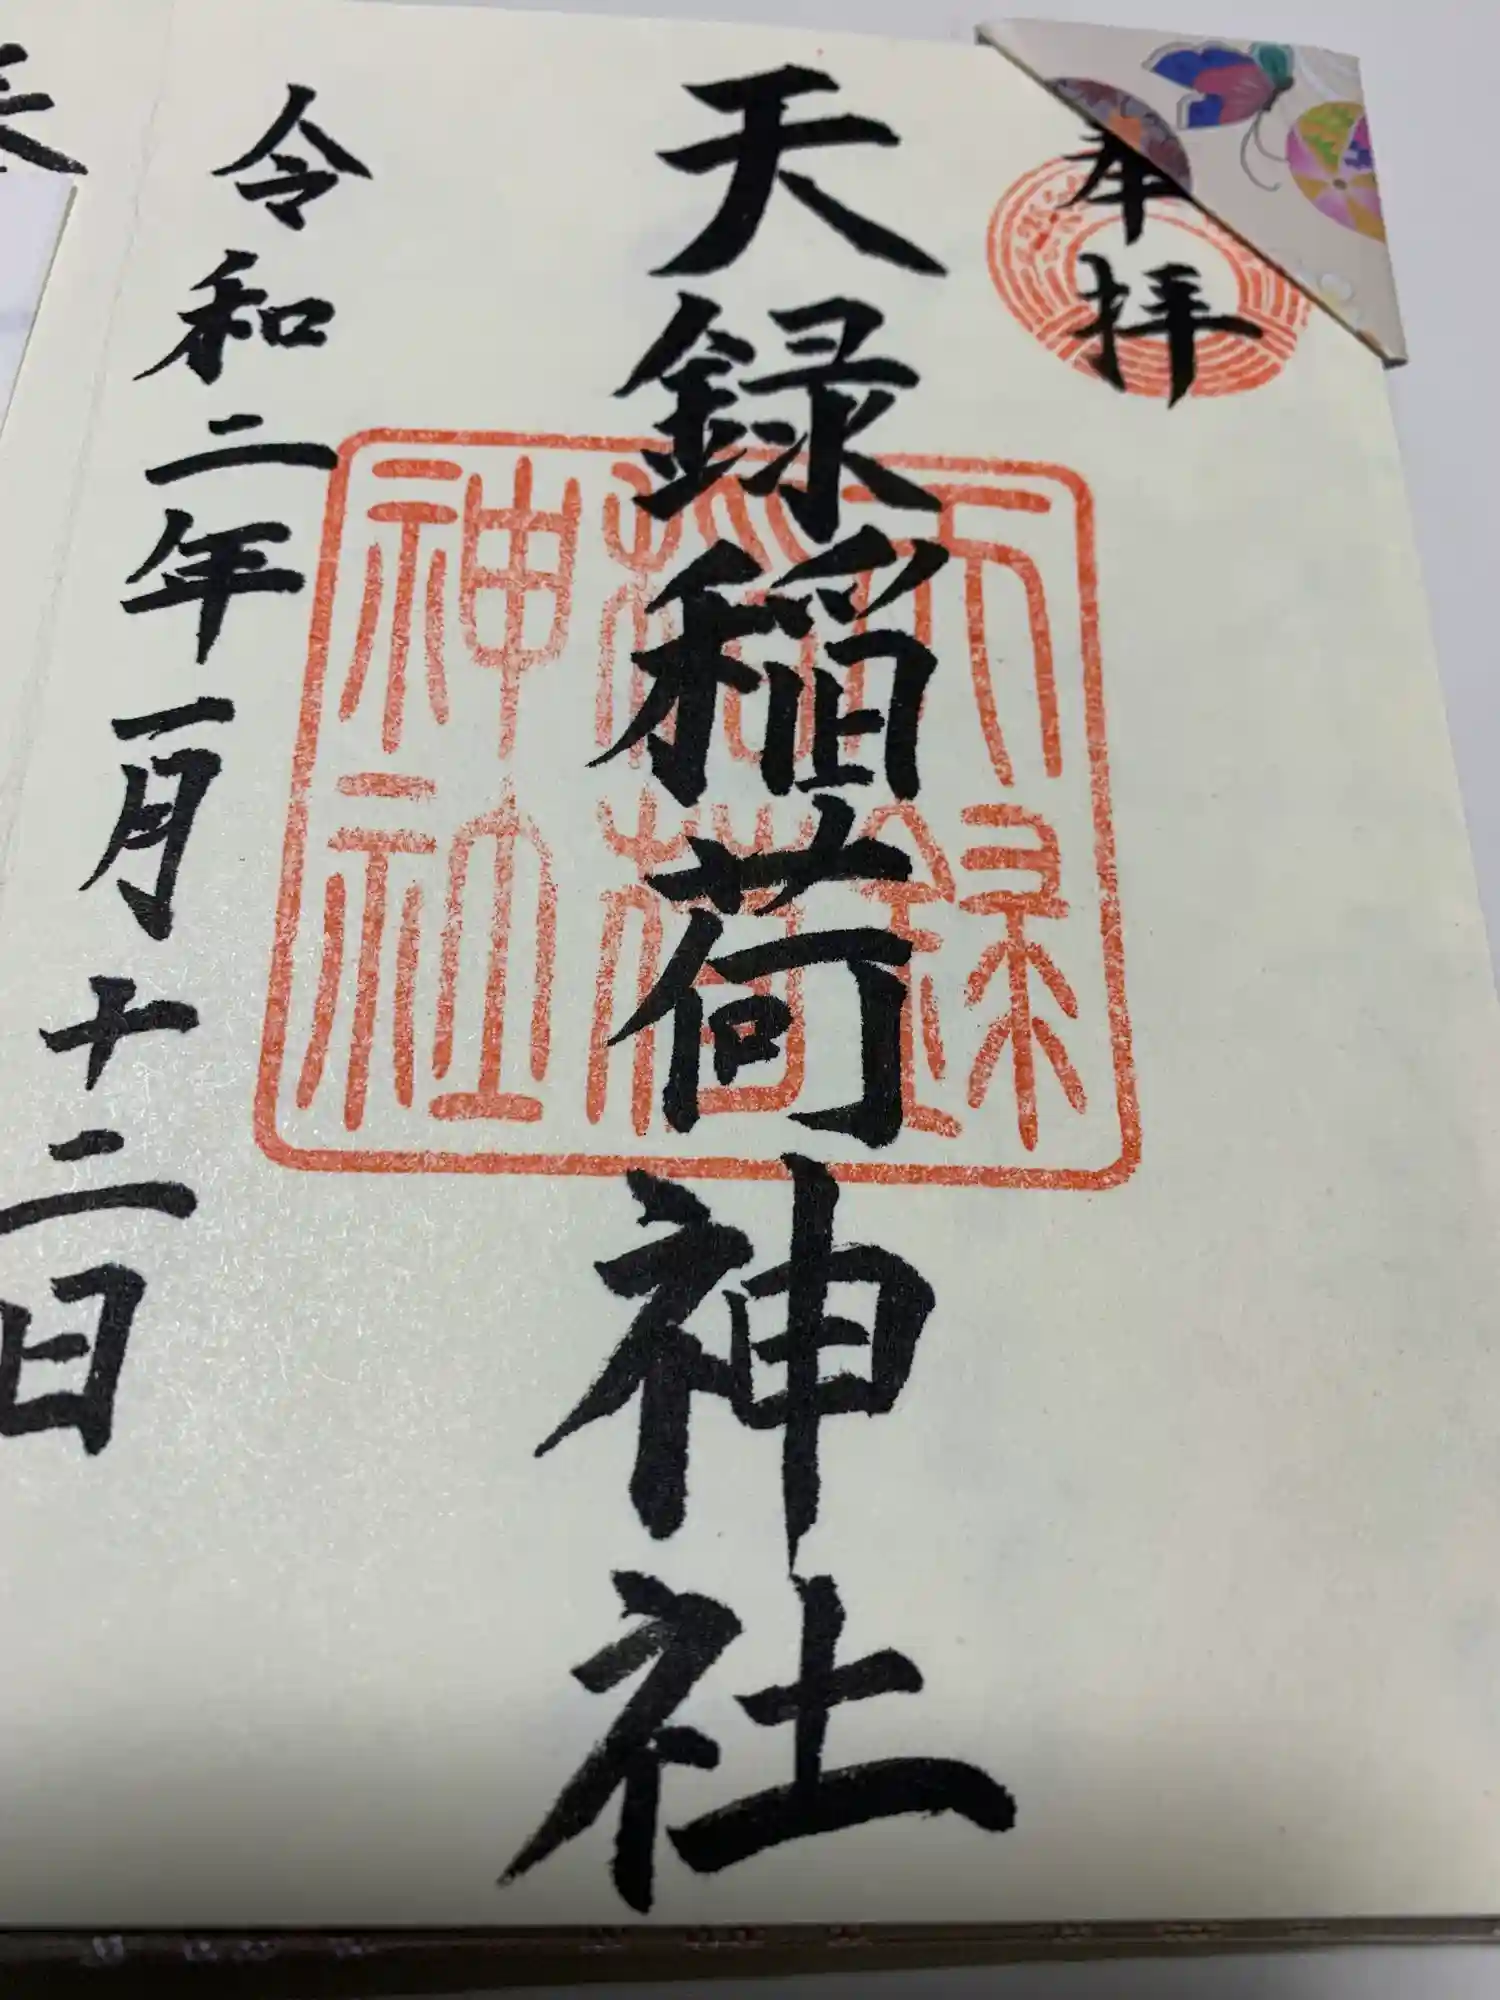 奉拝
天録稲荷神社
天録
稲荷
神社
令和二年一月十二日